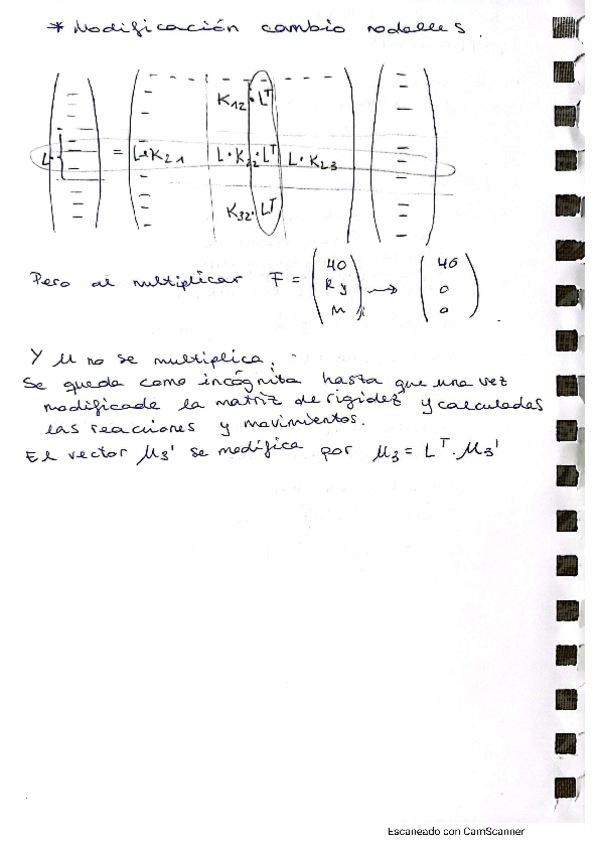 * Modificación cambio nodales.
K12·LT
L· = L·K21 L·K22·LT L·K23
K32·LT
Pero al multiplicar F = (40 Ry M) → (40 0 0).
Y u no se multiplica.
Se queda como incógnita hasta que una vez
modificada la matriz de rigidez y calculadas
las reacciones y movimientos.
El vector u3' se modifica por u3 = LT · u3'
Escaneado con CamScanner